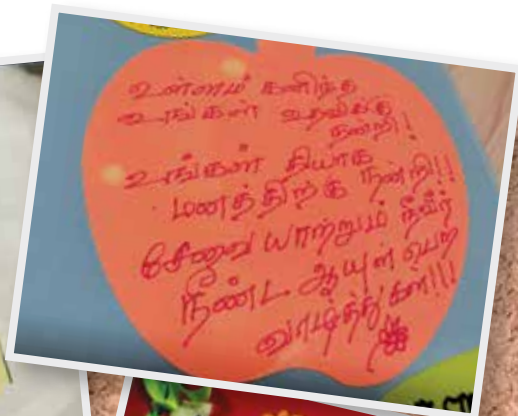 உள்ளம் கனிந்த
உங்கள் உதவிக்கு
நன்றி!
உங்கள் தியாக
மனத்திற்கு நன்றி!!
சேவையாற்றும் நீவிர்
நீண்ட ஆயுள் பெற
வாழ்த்துகள்!!!